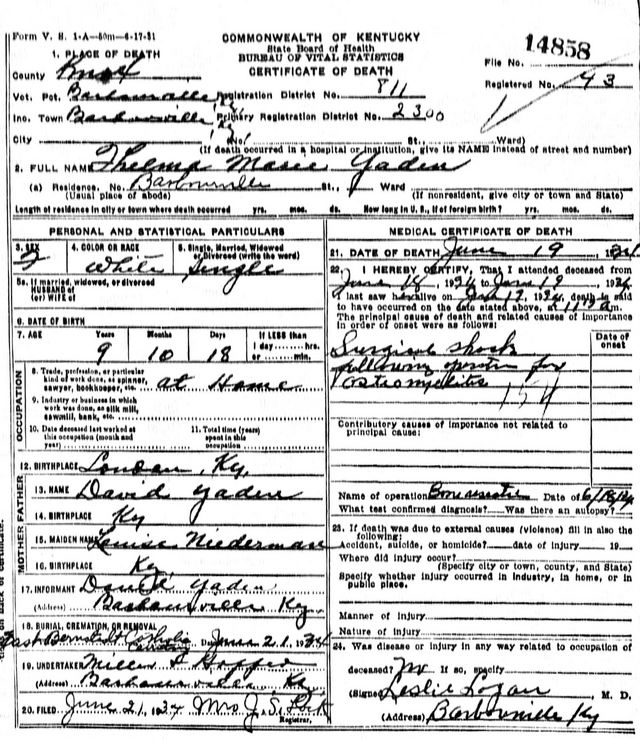 Form V. S. 1-A-50m-6-17-31
COMMONWEALTH OF KENTUCKY
State Board of Health
BUREAU OF VITAL STATISTICS
CERTIFICATE OF DEATH
File No. 14858
Registered No. 43
1. PLACE OF DEATH
County Knox
Vot. Pct. Barbourville Ky Registration District No. 811
Inc. Town Barbourville Ky Primary Registration District No. 2300
City (No. St., Ward)
(If death occurred in a hospital or institution, give its NAME instead of street and number)
2. FULL NAME Thelma Marie Yaden
(a) Residence. No. Barbourville St., Ward
(Usual place of abode) (If nonresident, give city or town and State)
Length of residence in city or town where death occurred yrs. mos. ds. How long in U. S., if of foreign birth? yrs. mos. ds.
PERSONAL AND STATISTICAL PARTICULARS
3. SEX F
4. COLOR OR RACE White
5. Single, Married, Widowed or Divorced (write the word) Single
5a. If married, widowed, or divorced
HUSBAND of
(or) WIFE of
6. DATE OF BIRTH
7. AGE Years Months Days If LESS than
9 10 18 1 day hrs.
or min.
OCCUPATION
8. Trade, profession, or particular
kind of work done, as spinner,
sawyer, bookkeeper, etc. at Home
9. Industry or business in which
work was done, as silk mill,
sawmill, bank, etc.
10. Date deceased last worked at
this occupation (month and
year)
11. Total time (years)
spent in this
occupation
12. BIRTHPLACE London, Ky.
MOTHER FATHER
13. NAME David Yaden
14. BIRTHPLACE Ky
15. MAIDEN NAME Louise
16. BIRTHPLACE Ky.
17. INFORMANT Yaden
(Address) Barbourville Ky.
18. BURIAL, CREMATION, OR REMOVAL
East Bernstadt Catholic Cemetery Date June 21, 1934
19. UNDERTAKER
(Address) Barbourville Ky
20. FILED June 21, 1934 Mrs J. S.
Registrar.
MEDICAL CERTIFICATE OF DEATH
21. DATE OF DEATH June 19, 1934
22. I HEREBY CERTIFY, That I attended deceased from
June 18, 1934 to June 19, 1934
I last saw her alive on June 19, 1934, death is said
to have occurred on the date stated above, at m.
The principal cause of death and related causes of importance
in order of onset were as follows:
Date of onset
Surgical shock
following operation for
osteomyelitis
154
Contributory causes of importance not related to
principal cause:
Name of operation Date of 6/18/34
What test confirmed diagnosis? Was there an autopsy?
23. If death was due to external causes (violence) fill in also the
following:
Accident, suicide, or homicide? date of injury 19
Where did injury occur?
(Specify city or town, county, and State)
Specify whether injury occurred in industry, in home, or in
public place.
Manner of injury
Nature of injury
24. Was disease or injury in any way related to occupation of
deceased? No If so, specify
(Signed Leslie Logan, M. D.
(Address) Barbourville Ky